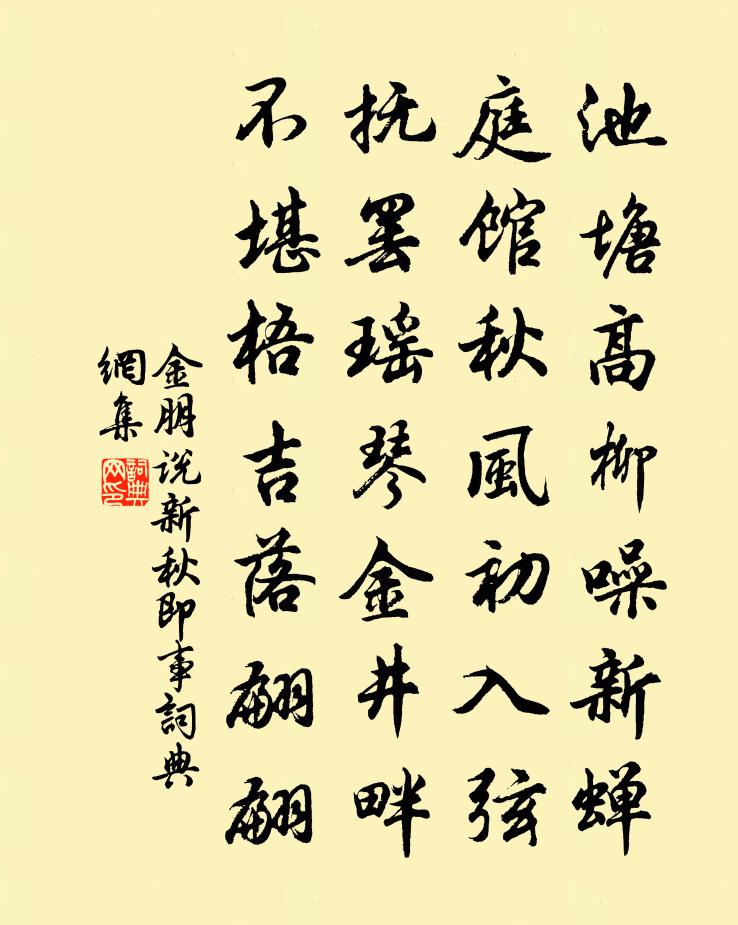 池塘高柳噪新蝉
庭馆秋風初入弦
抚罢瑶琴金井畔
不堪梧吉落翩翩
金朋说新秋即事詞典
網集
詞典
网印